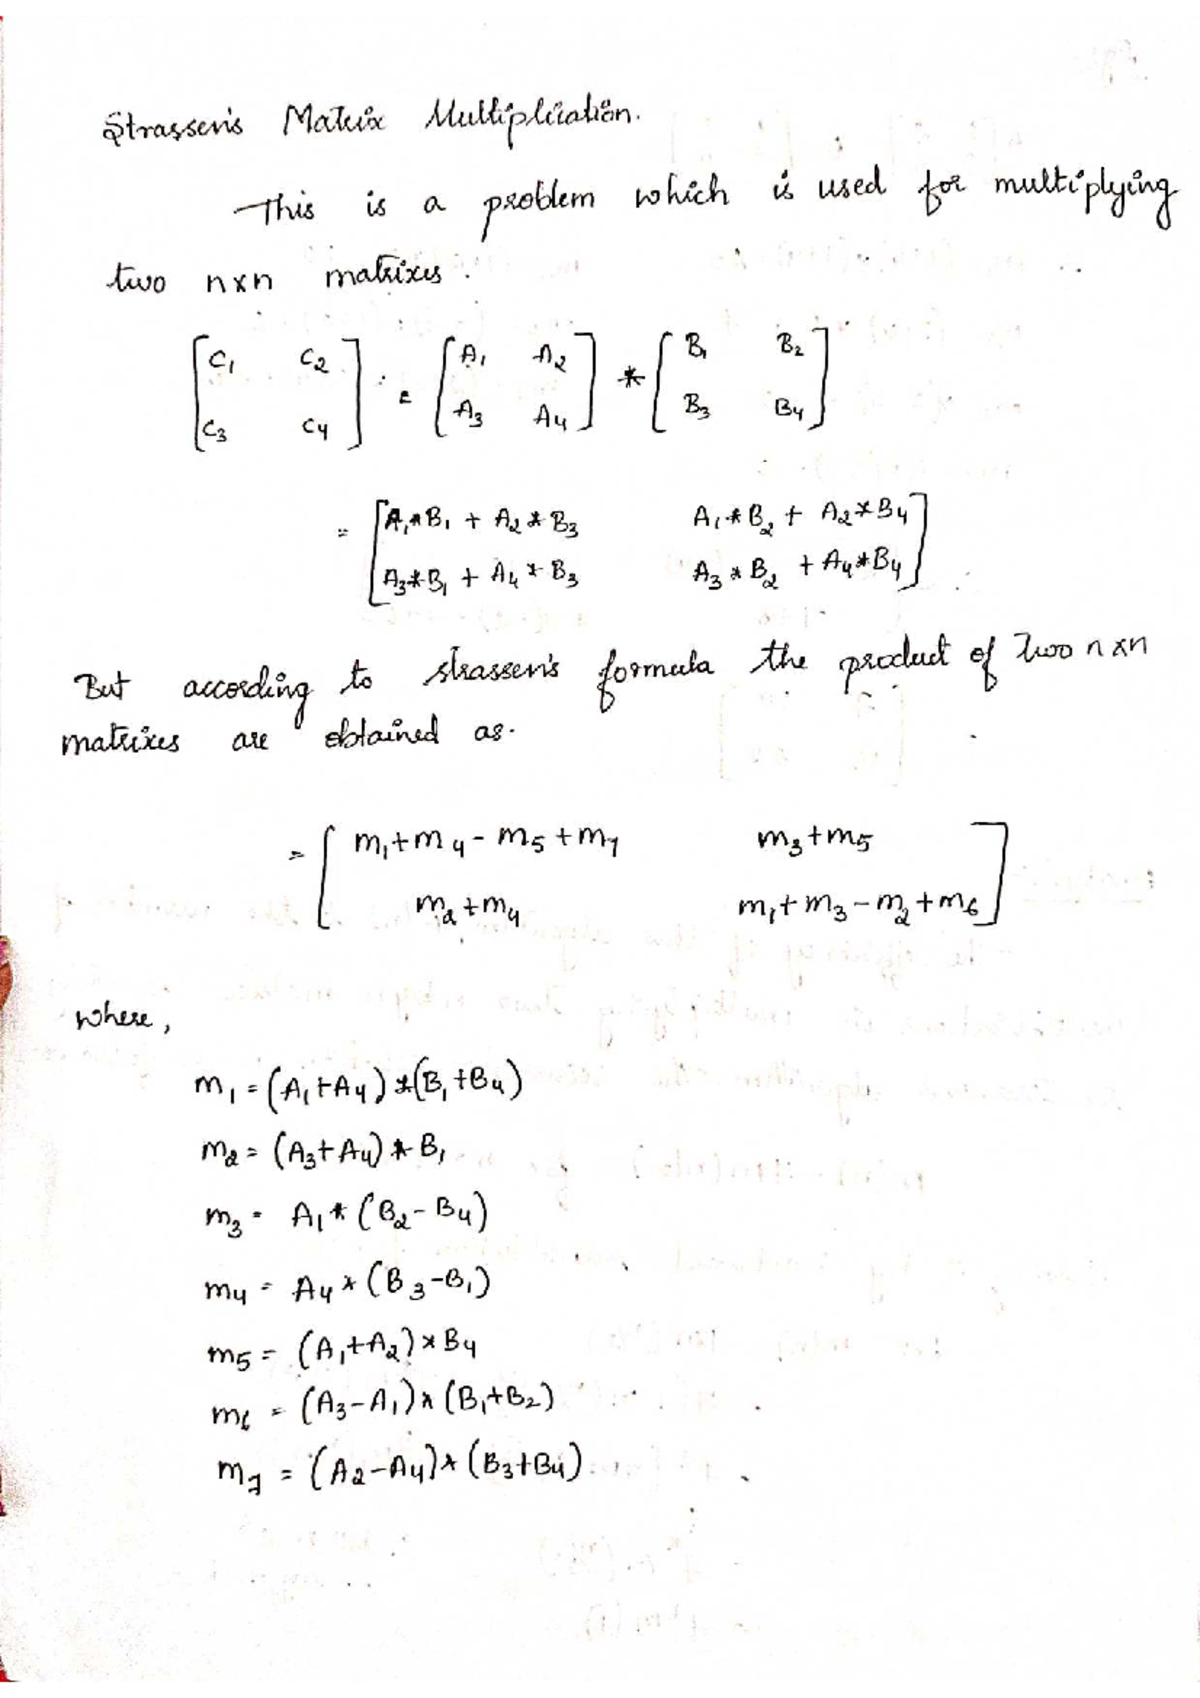 Strassen's Matrix Multiplication.
This is a problem which is used for multiplying
two n×n matrixes.
[C1 C2; C3 C4] = [A1 A2; A3 A4] * [B1 B2; B3 B4]
= [A1*B1 + A2*B3 A1*B2 + A2*B4
A3*B1 + A4*B3 A3*B2 + A4*B4]
But according to strassen's formula the product of two n×n
matrixes are obtained as.
= [m1+m4-m5+m7 m3+m5
m2+m4 m1+m3-m2+m6]
where,
m1 = (A1+A4)*(B1+B4)
m2 = (A3+A4)*B1
m3 = A1*(B2-B4)
m4 = A4*(B3-B1)
m5 = (A1+A2)*B4
m6 = (A3-A1)*(B1+B2)
m7 = (A2-A4)*(B3+B4)